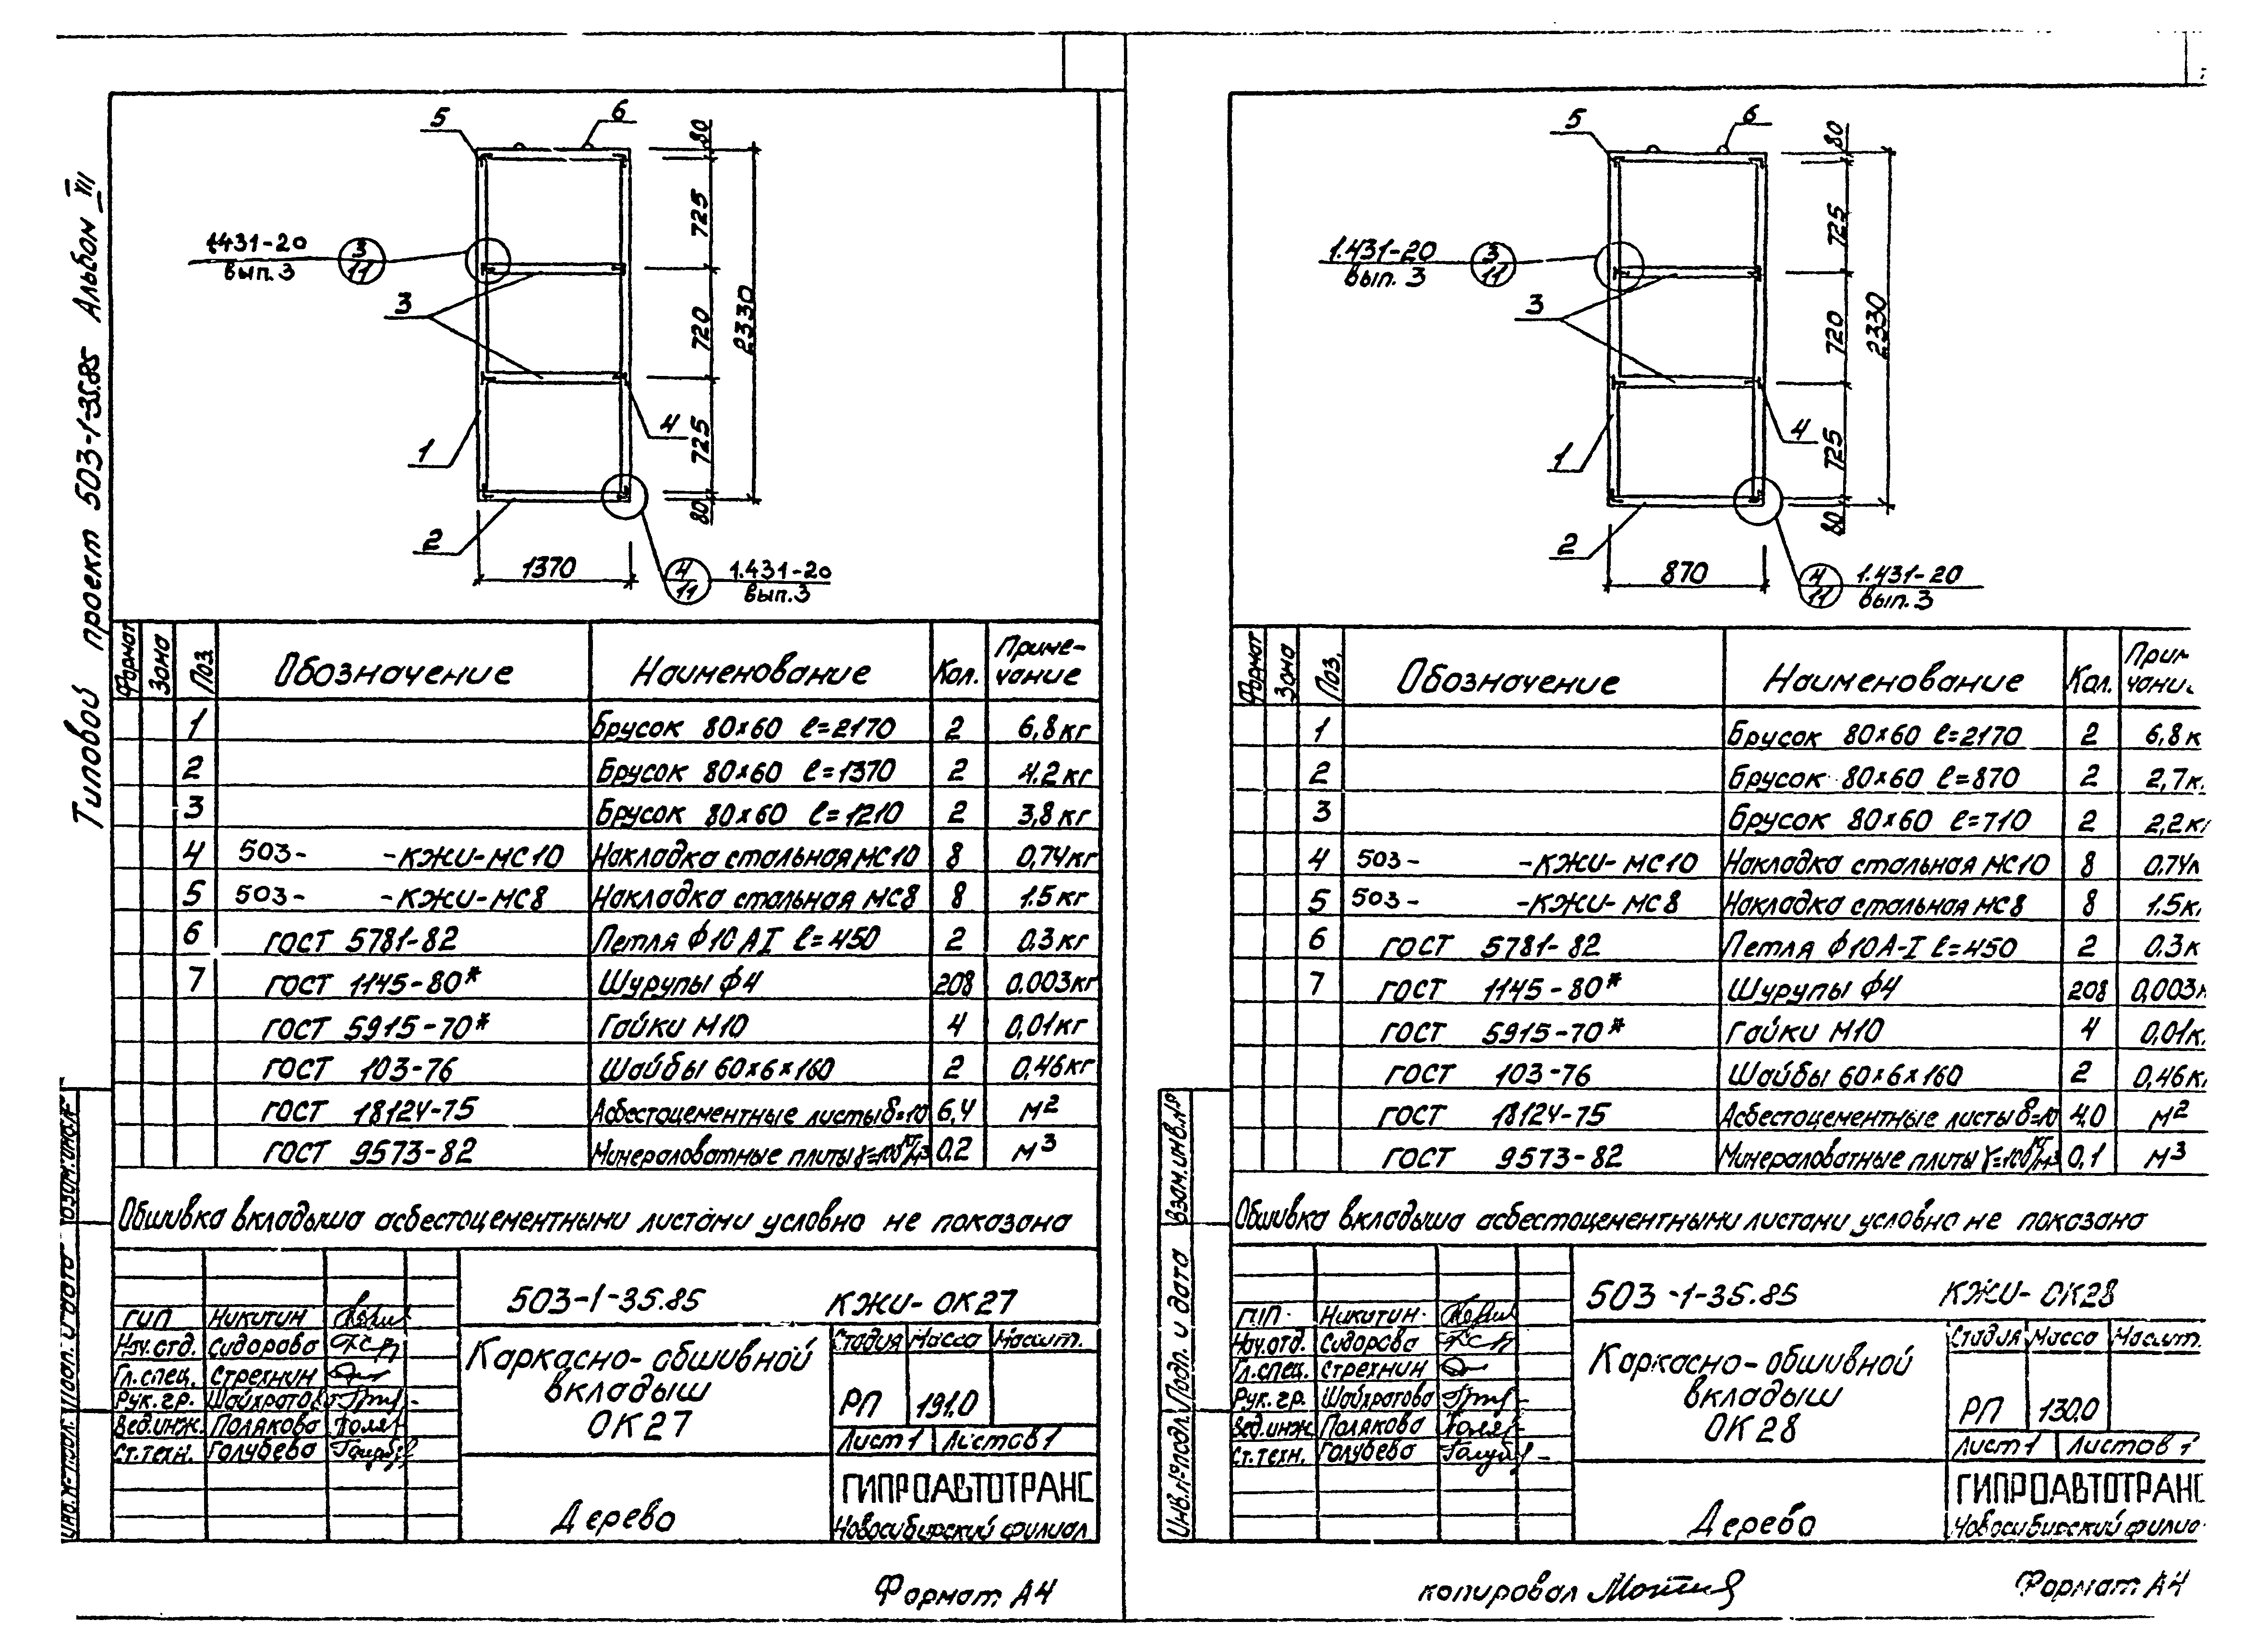 Типовой проект 503-1-35.85 Альбом VIII
5
6
80
725
720
725
80
2330
1.431-20
вып.3
3
11
3
4
1
2
1370
4
11
1.431-20
вып.3
Формат Зона Поз. Обозначение Наименование Кол. Приме-
чание
1 Брусок 80×60 ℓ=2170 2 6,8кг
2 Брусок 80×60 ℓ=1370 2 4.2кг
3 Брусок 80×60 ℓ=1210 2 3,8кг
4 503- -КЖИ-МС10 Накладка стальная МС10 8 0,74кг
5 503- -КЖИ-МС8 Накладка стальная МС8 8 1.5кг
6 ГОСТ 5781-82 Петля ф10 АI ℓ=450 2 0.3кг
7 ГОСТ 1145-80* Шурупы ф4 208 0.003кг
ГОСТ 5915-70* Гайки М10 4 0,01кг
ГОСТ 103-76 Шайбы 60×6×160 2 0,46кг
ГОСТ 18124-75 Асбестоцементные листы δ=10 6,4 м²
ГОСТ 9573-82 Минераловатные плиты γ=100кг/м3 0.2 м³
Обшивка вкладыша асбестоцементными листами условно не показана
503-1-35.85 КЖИ-ОК27
ГИП Никитин
Нач.отд. Сидорова
Гл.спец. Стрехнин
Рук.гр. Шайхратов
Вед.инж. Полякова
Ст.техн. Голубева
Каркасно-обшивной
вкладыш
ОК27
Стадия Масса Масшт.
РП 191.0
Лист 1 Листов 1
Дерево
ГИПРОАВТОТРАНС
Новосибирский филиал
Формат А4
5
6
80
725
720
725
80
2330
1.431-20
вып.3
3
11
3
4
1
2
870
4
11
1.431-20
вып.3
Формат Зона Поз. Обозначение Наименование Кол. Прим
чани
1 Брусок 80×60 ℓ=2170 2 6,8к
2 Брусок 80×60 ℓ=870 2 2,7к
3 Брусок 80×60 ℓ=710 2 2,2кг
4 503- -КЖИ-МС10 Накладка стальная МС10 8 0.74к
5 503- -КЖИ-МС8 Накладка стальная МС8 8 1.5к
6 ГОСТ 5781-82 Петля ф10А-I ℓ=450 2 0.3к
7 ГОСТ 1145-80* Шурупы ф4 208 0,003к
ГОСТ 5915-70* Гайки М10 4 0,01к
ГОСТ 103-76 Шайбы 60×6×160 2 0,46к
ГОСТ 18124-75 Асбестоцементные листы δ=10 4.0 м²
ГОСТ 9573-82 Минераловатные плиты γ=100кг/м3 0,1 м³
Обшивка вкладыша асбестоцементными листами условно не показана
Инв.№подл. Подп. и дата Взам.инв.№
503-1-35.85 КЖИ-ОК28
ГИП Никитин
Нач.отд. Сидорова
Гл.спец. Стрехнин
Рук.гр. Шайхратова
Вед.инж. Полякова
Ст.техн. Голубева
Каркасно-обшивной
вкладыш
ОК28
Стадия Масса Масшт.
РП 130.0
Лист 1 Листов 1
Дерево
ГИПРОАВТОТРАНС
Новосибирский филиа
копировал
Формат А4